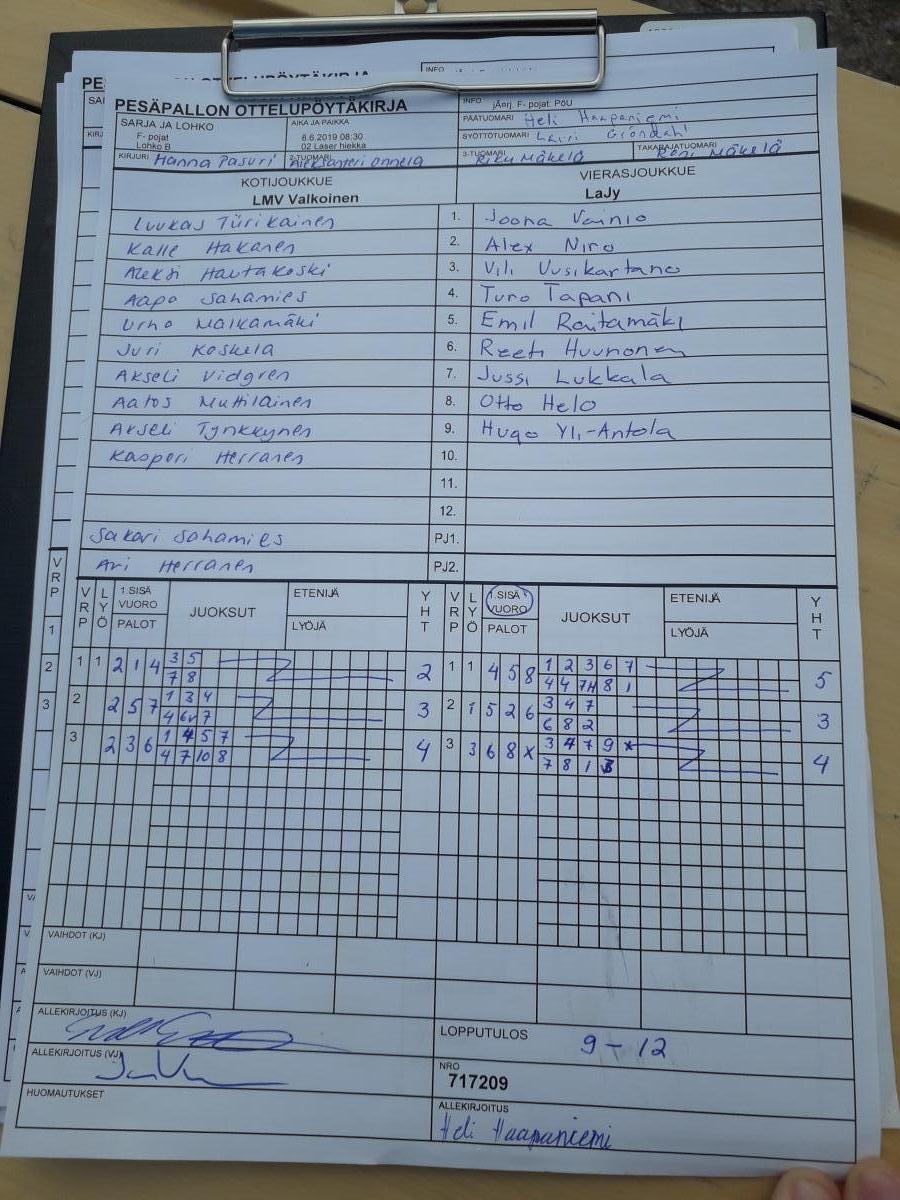 PESÄPALLON OTTELUPÖYTÄKIRJA
INFO jÄörj. F- pojat: PöU
SARJA JA LOHKO
F- pojat
Lohko B
AIKA JA PAIKKA
8.6.2019 08:30
02 Laser hiekka
PÄÄTUOMARI Heli Haapaniemi
SYÖTTÖTUOMARI Lauri Gröndahl
KIRJURI Hanna Pasuri
2-TUOMARI Aleksanteri Onnela
3-TUOMARI Riku Mäkelä
TAKARAJATUOMARI Roni Mäkelä
KOTIJOUKKUE
LMV Valkoinen
VIERASJOUKKUE
LaJy
Luukas Türikainen 1. Joona Vainio
Kalle Hakanen 2. Alex Niro
Aleksi Hautakoski 3. Vili Uusikartano
Aapo Sahamies 4. Turo Tapani
Urho Malkamäki 5. Emil Raitamäki
Juri Koskela 6. Reeti Huunonen
Akseli Vidgren 7. Jussi Lukkala
Aatos Muttilainen 8. Otto Helo
Akseli Tynkkynen 9. Hugo Yli-Antola
Kasperi Herranen 10.
11.
12.
Sakari Sahamies PJ1.
Ari Herranen PJ2.
VRP LYÖ 1.SISÄ VUORO PALOT JUOKSUT ETENIJÄ LYÖJÄ YHT VRP LYÖ 1.SISÄ VUORO PALOT JUOKSUT ETENIJÄ LYÖJÄ YHT
1 1 2 1 4 3 5 2 1 1 4 5 8 1 2 3 6 7 5
7 8 4 4 7H 8 1
2 2 5 7 1 3 4 3 2 1 5 2 6 3 4 7 3
4 6V 7 6 8 2
3 2 3 6 1 4 5 7 4 3 3 6 8 X 3 4 7 9 x 4
4 7 10 8 7 8 1 3
VAIHDOT (KJ)
VAIHDOT (VJ)
ALLEKIRJOITUS (KJ)
LOPPUTULOS 9 - 12
ALLEKIRJOITUS (VJ)
NRO
717209
HUOMAUTUKSET
ALLEKIRJOITUS
Heli Haapaniemi